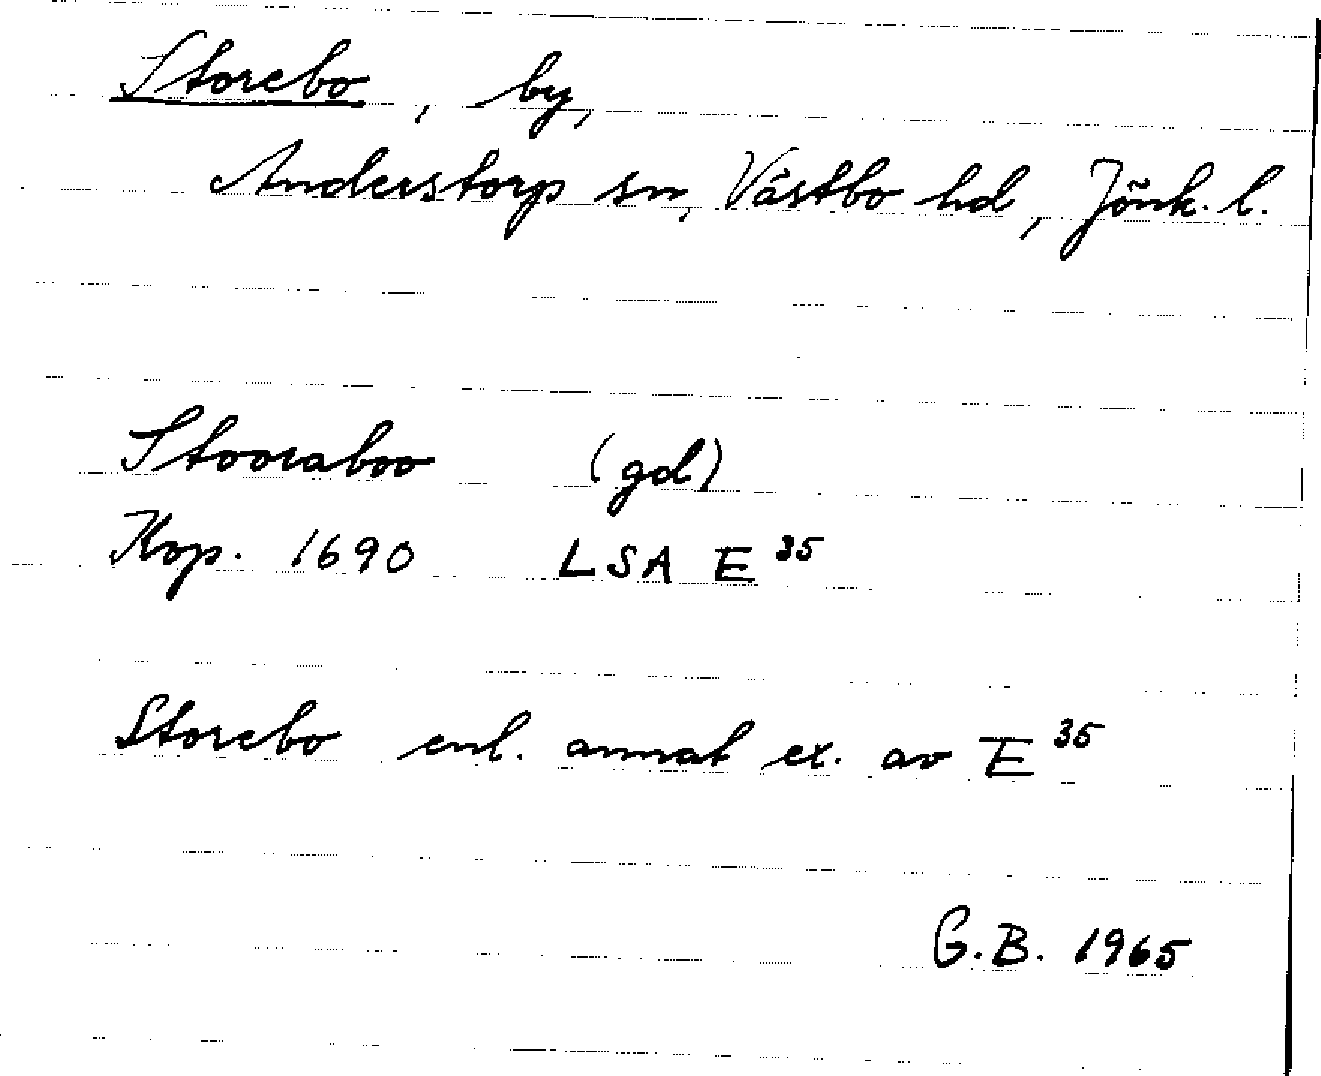 Storebo, by,
Anderstorp sn, Västbo hd, Jönk. l.
Stooraboo (gd)
Kop. 1690 LSA E 35
Storebo enl. annat ex. av E 35
G.B. 1965